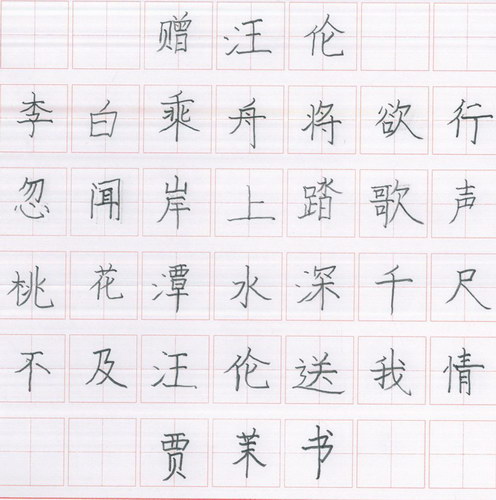 赠汪伦
李白乘舟将欲行
忽闻岸上踏歌声
桃花潭水深千尺
不及汪伦送我情
贾茉书